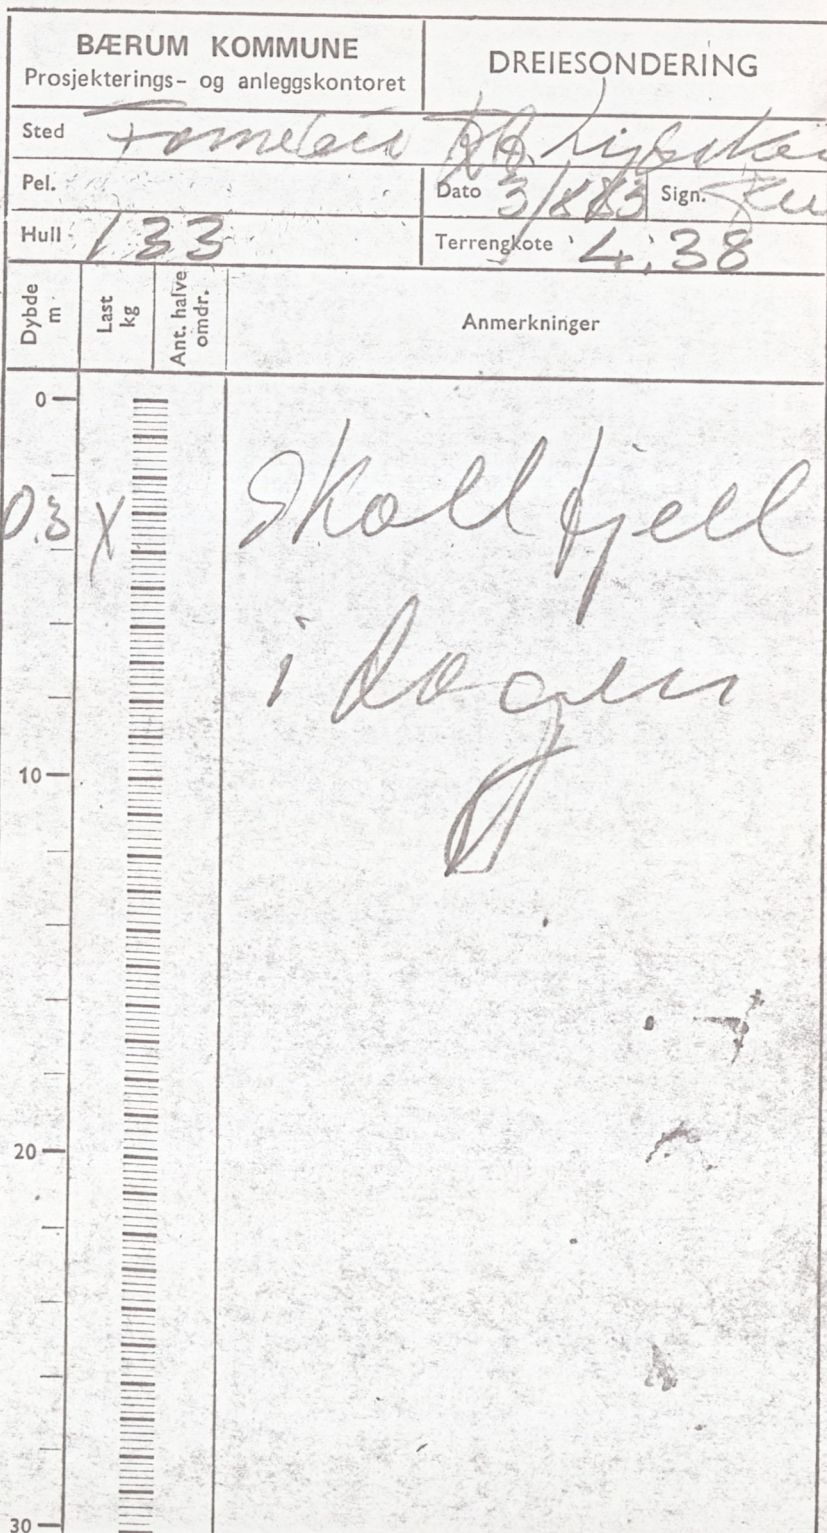 BÆRUM KOMMUNE
Prosjekterings- og anleggskontoret
DREIESONDERING
Sted
Pel.
Dato 3/8 83 Sign.
Hull 133
Terrengkote 4.38
Dybde m
Last kg
Ant. halve omdr.
Anmerkninger
0
0.3 X Skall fjell
i dagen
10
20
30